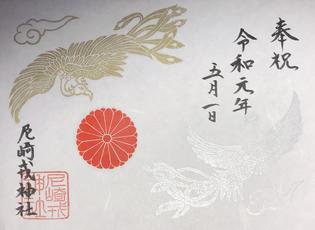 奉祝
令和元年
五月一日
尼崎戎神社
尼崎戎
神社